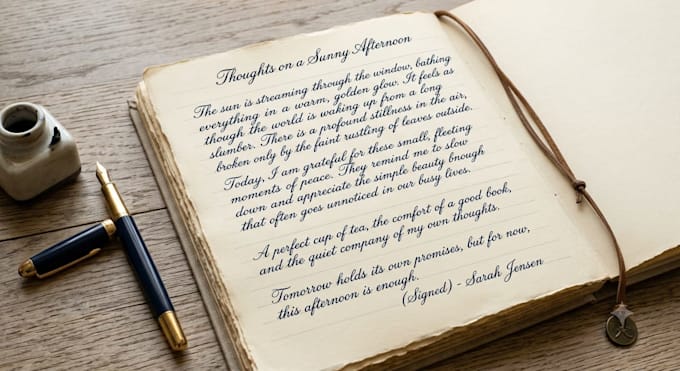 Thoughts on a Sunny Afternoon
The sun is streaming through the window, bathing
everything in a warm, golden glow. It feels as
though the world is waking up from a long
slumber. There is a profound stillness in the air,
broken only by the faint rustling of leaves outside.
Today, I am grateful for these small, fleeting
moments of peace. They remind me to slow
down and appreciate the simple beauty bnough
that often goes unnoticed in our busy lives.
A perfect cup of tea, the comfort of a good book,
and the quiet company of my own thoughts.
Tomorrow holds its own promises, but for now,
this afternoon is enough.
(Signed) - Sarah Jensen